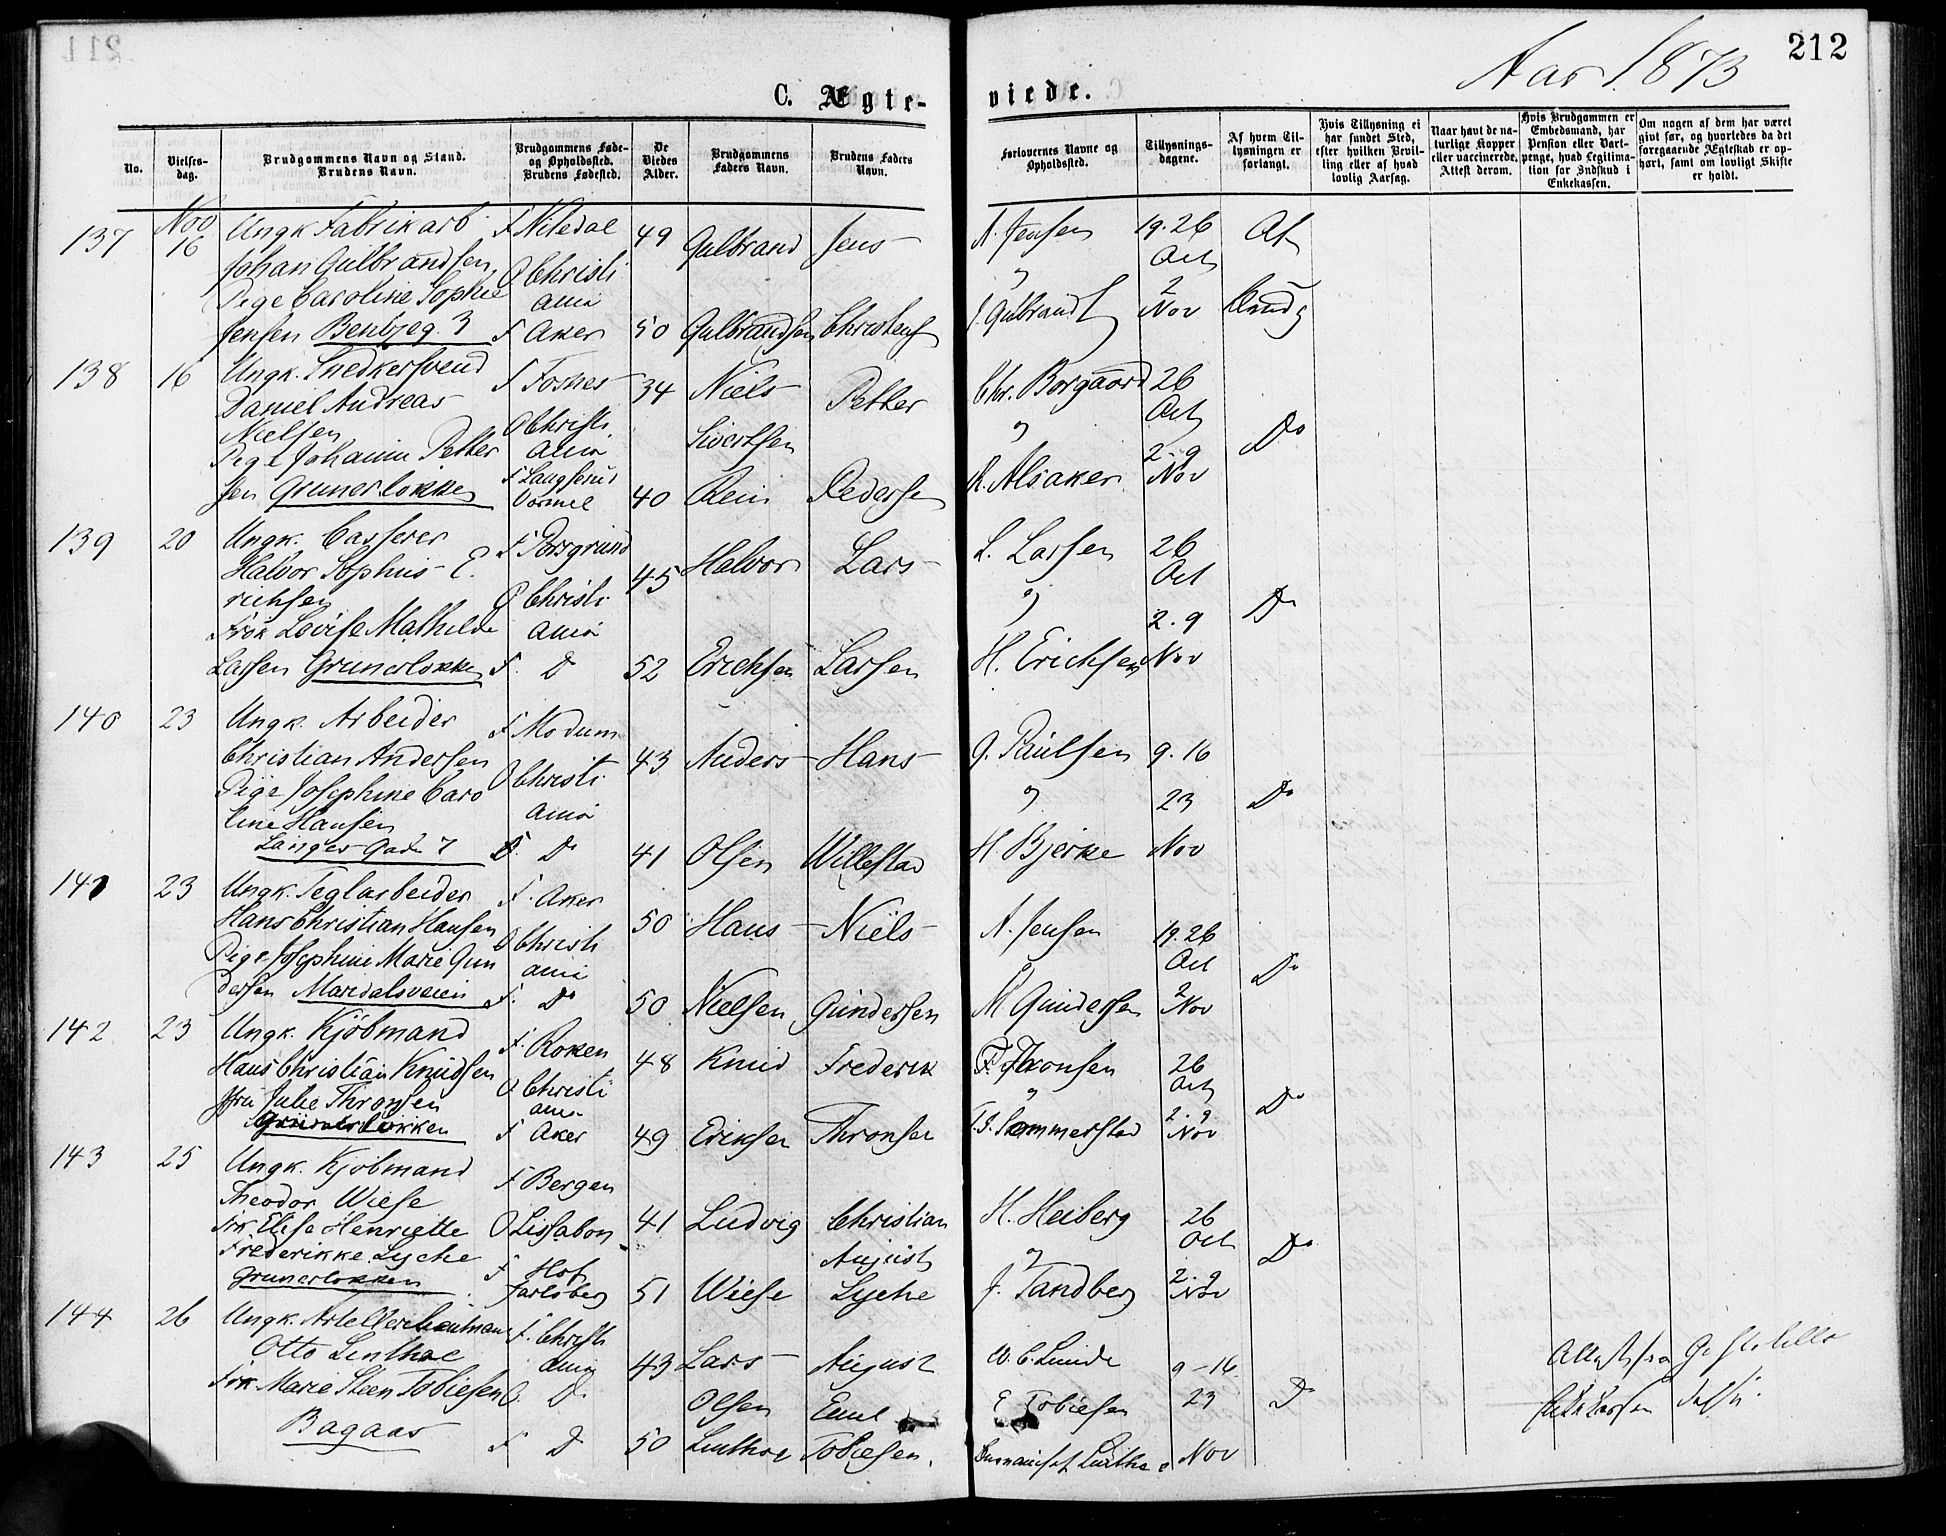 212
Aar 1873
C. Ægte-
viede.
No.
Vielses-
dag.
Brudgommens Navn og Stand.
Brudens Navn.
Brudgommens Føde-
og Opholdssted.
Brudens Fødested.
De
Viedes
Alder.
Brudgommens
Faders Navn.
Brudens Faders
Navn.
Forlovernes Navne og
Opholdssted.
Tillysnings-
dagene.
Af hvem Til-
lysningen er
forlangt.
Hvis Tillysning ei
har fundet Sted,
efter hvilken Bevil-
ling eller af hvad
lovlig Aarsag.
Naar havt de na-
turlige Kopper
eller vaccinerede.
Attest derom.
Hvis Brudgommen er
Embedsmand, har
Pension eller Vart-
penge, hvad Legitima-
tion for Indskud i
Enkekassen.
Om nogen af dem har været
givt før, og hvorledes da det
foregaaende Ægteskab er op-
hørt, samt om lovligt Skifte
er holdt.
137
Nov
16
Ungk. Fabrikarb
Johan Gulbrandsen,
Pige Caroline Sophie
Jensen Benbjeg. 3
F Nitedal
O Christi
ania
F Aker
49
50
Gulbrand
Gulbrandsen
Jens
Christens
A. Jensen
"
J. Gulbrands
19. 26
Oct
2
Nov
Af
138
16
Ungk. Snedkersvend
Daniel Andreas
Nielsen
Pige Johanne Petter
sen Grunerløkken
F Fosnes
O Christi
ania
F Laugserud
34
40
Niels
Sivertsen
Rein
Petter
Pedersen
Chr. Borgaard
"
R. Alsaker
26
Oct
2-9
Nov
Do
139
20
Ungk. Casserer
Halvor Sophus E.
richsen
Frk Lovise Mathilde
Larsen Grunerløkken
F Porsgrund
O Christi
ania
F. Do
45
52
Halvor
Erichsen
Lars
Larsen
L. Larsen
"
H. Erichsen
26
Oct
2. 9
Nov
Do
140
23
Ungk. Arbeider
Christian Andersen
Pige Josephine Caro
line Hansen
Langes Gade 7
F Modum
O Christi
ania
F. Do
43
41
Anders
Olsen
Hans
Willestad
G. Paulsen
"
H Bjerke
9. 16
23
Nov
Do
141
23
Ungk. Teglarbeider
Hans Christian Hansen
Pige Josephine Marie Gun
dersen Maridalsveien
F. Aker
O Christi
ania
F. Do
50
50
Hans
Nielsen
Niels
Gundersen
A. Jensen
"
M Gundersen
19. 26
Oct
2
Nov
Do
142
23
Ungk. Kjøbmand
Hans Christian Knudsen
Jfru Julie Thronsen
Grünerløkken
F. Røken
O Christi
ania
F Aker
48
49
Knud
Eriksen
Frederik
Thronsen
F. Thronsen
"
T. S. Sommerstad
26
Oct
2. 9
Nov
Do
143
25
Ungk. Kjøbmand
Theodor Wiese
Frk Elise Henriette
Frederikke Lyche
Grunerløkken
F Bergen
O Lissabon
F Hof
Jarlsberg
41
51
Ludvig
Wiese
Christian
August
Lyche
H. Heiberg
"
J. Tandberg
26
Oct
2. 9
Nov
Do
144
26
Otto Linthoe
Frk Marie Steen Tobiesen
Bagaas
F. Christi
ania
O. Do
F Do
43
50
Lars
Olsen
Linthoe
August
Emil
Tobiesen.
W. C. Lunde
E Tobiesen
9-16
23
Nov
Do